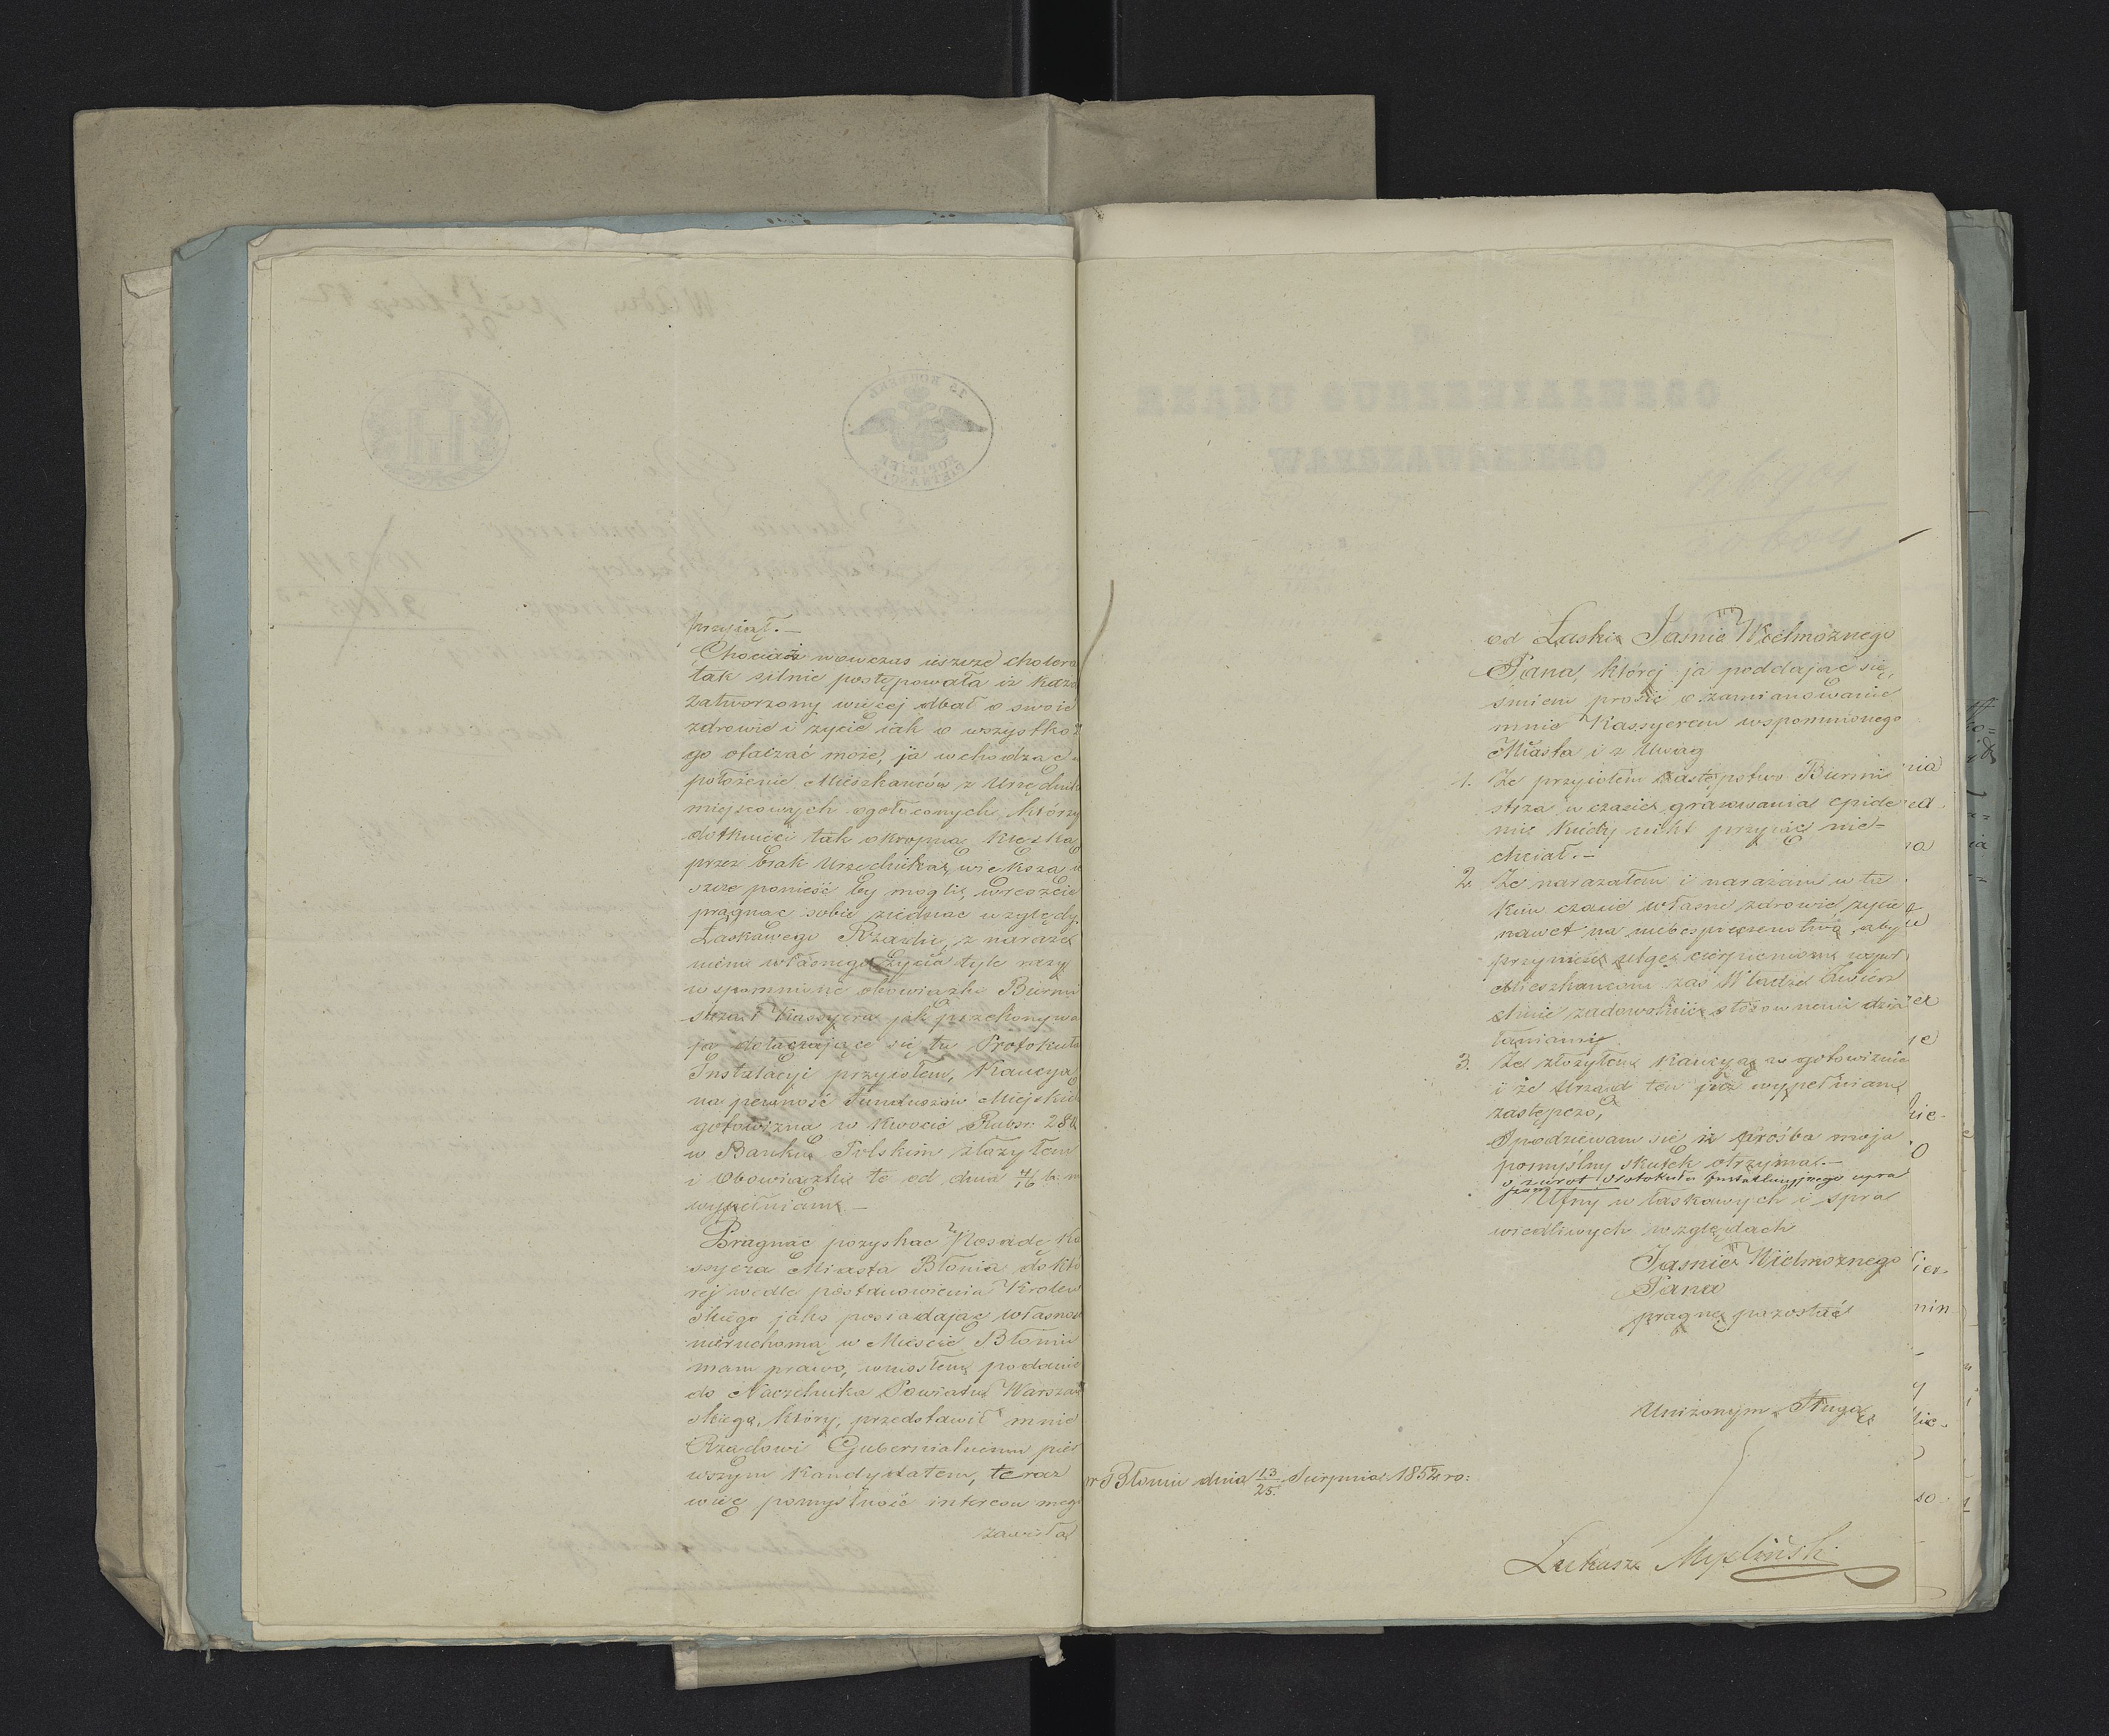 przyiąć.—
Chociaż wowczas ieszcze cholera
tak silnie postępowała iż każd
zatworzony więcej dbał o swoie
zdrowie i życie iak o wszystko
go otaczać może, ja wchodząc w
położenie Mieszkańców z Urzędnik
miejscowych ogołoconych, którzy
dotknięci tak okropną klęską
przez brak Urzędnika, większą ie
szcze ponieść by mogli, wreszcie
pragnąc sobie ziednac względy
Łaskawego Rządu, z naraże
niem własnego życia tyle razy
wspomnione obowiązki Burmi
strza i Kassyera jak przekonywa
ją dołączające się tu Protokuła
Instalacyi przyiołem, Kaucyą
na pewność Funduszów Miejskich
gotowizną w kwocie Rubsr: 280
w Banku Polskim złożyłem
i Obowiązki te od dnia 4/16 b: m
wypełniam.—
Pragnąc pozyskać Posadę Ka
ssyera Miasta Błonia do któ
rej wedle postanowienia Królew
skiego jako posiadając własność
nieruchomą w Mieście Błoniu
mam prawo, wniosłem podanie
do Naczelnika Powiatu Warszaw
skiego, który, przedstawił mnie
Rządowi Gubernialnemu pier
wszym Kandydatem, teraz
więc pomyślność interesu mego
zawisła
od Łaski Jaśnie Wielmożnego
Pana, której ja poddając się,
śmiem prosić o zamianowanie
mnie Kassyerem wspomnionego
Miasta i z Uwag
1. Że przyiołem zastępstwo Burmi
strza w czasie grassowania epide
mii kiedy nikt przyiąć nie-
chciał.—
2. Że narażałem i narażam w ta
kim czasie własne zdrowie, życie
nawet na niebespieczeństwo, aby
przynieść ulgę cierpieniom współ
Mieszkańcom zaś Władzę Zwierz
chnię zadowolnić stosownemi dzia
łaniami.
3. Że złożyłem Kaucyą w gotowiznie
i że Urząd ten już wypełniam
zastępczo,
Spodziewam się iż prośba moja
pomyślny skutek otrzyma.—
o zwrot Protokułu Instalacyjnego upra
szam
Ufny w łaskawych i spra
wiedliwych względach
Jaśnie Wielmożnego
Pana
pragnę pozostać
Uniżonym Sługą
w Błoniu dnia 13/25 Sierpnia 1852 ro:
Łukasz Myśliński